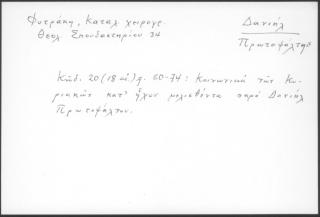 Φυτράκη, Καταλ. χειρογρ.
Θεολ. Σπουδαστηρίου 34
Δανιήλ
Πρωτοψάλτης
Κῶδ. 20 (18 αἰ.) φ. 60-74: Κοινωνικὰ τῶν Κυ-
ριακῶν κατ' ἦχον μελισθέντα παρὰ Δανιὴλ
Πρωτοψάλτου.